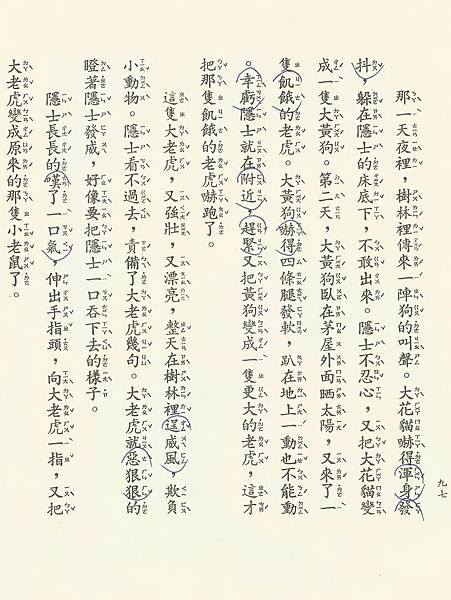 那一天夜裡，樹林裡傳來一陣狗的叫聲。大花貓嚇得渾身發
抖，躲在隱士的床底下，不敢出來。隱士不忍心，又把大花貓變
成一隻大黃狗。第二天，大黃狗臥在茅屋外面晒太陽，又來了一
隻飢餓的老虎。大黃狗嚇得四條腿發軟，趴在地上一動也不能動
。幸虧隱士就在附近，趕緊又把黃狗變成一隻更大的老虎，這才
把那隻飢餓的老虎嚇跑了。
這隻大老虎，又強壯，又漂亮，整天在樹林裡逞威風，欺負
小動物。隱士看不過去，責備了大老虎幾句。大老虎就惡狠狠的
瞪著隱士發威，好像要把隱士一口吞下去的樣子。
隱士長長的嘆了一口氣，伸出手指頭，向大老虎一指，又把
大老虎變成原來的那隻小老鼠了。
九七